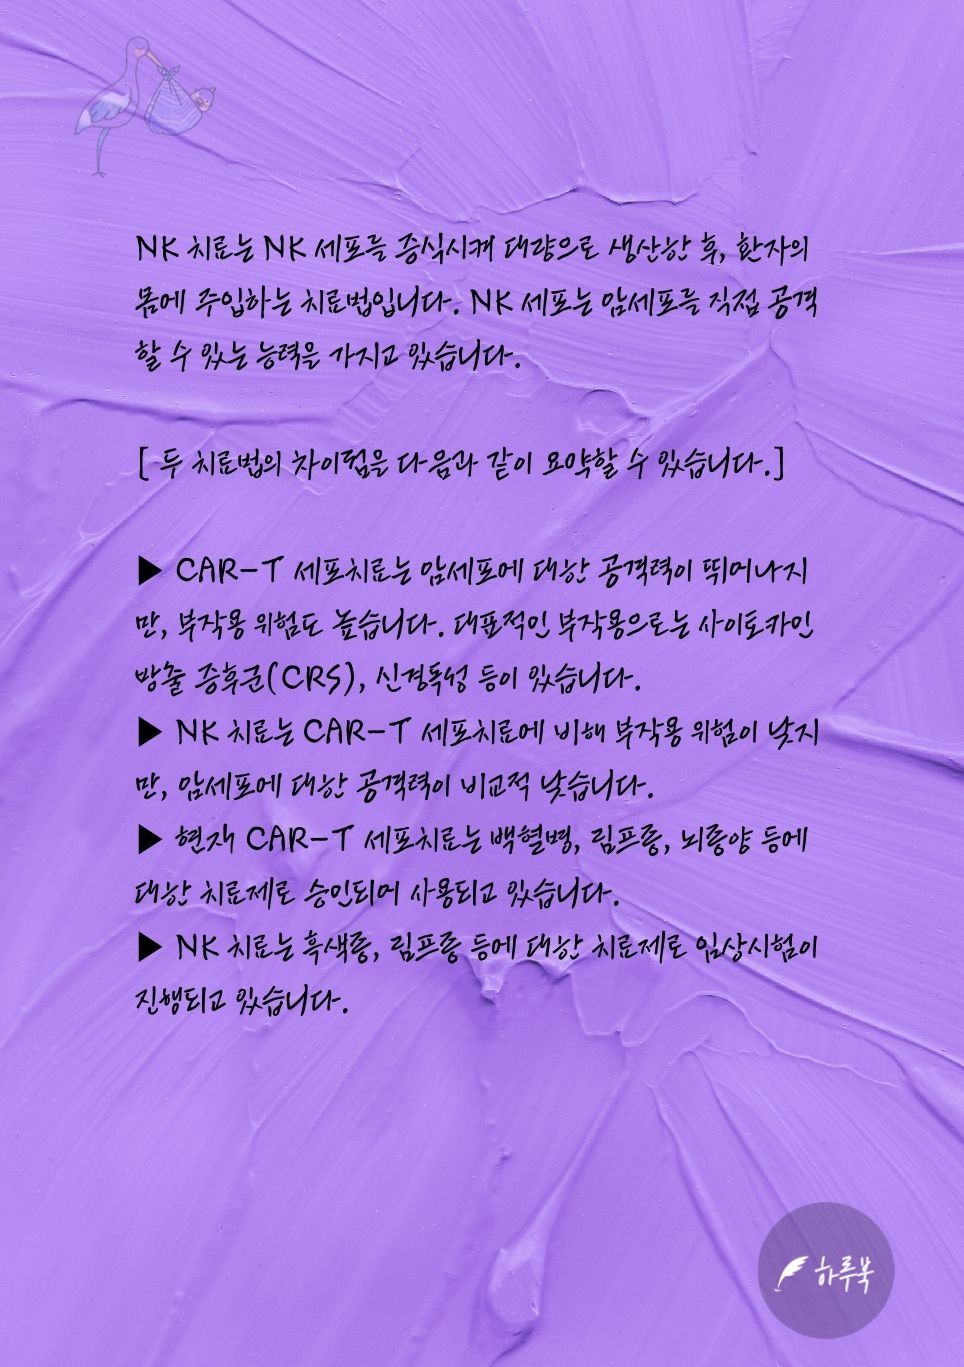 NK 치료는 NK 세포를 증식시켜 대량으로 생산한 후, 환자의
몸에 주입하는 치료법입니다. NK 세포는 암세포를 직접 공격
할 수 있는 능력을 가지고 있습니다.
[ 두 치료법의 차이점은 다음과 같이 요약할 수 있습니다.]
▶ CAR-T 세포치료는 암세포에 대한 공격력이 뛰어나지
만, 부작용 위험도 높습니다. 대표적인 부작용으로는 사이토카인
방출 증후군(CRS), 신경독성 등이 있습니다.
▶ NK 치료는 CAR-T 세포치료에 비해 부작용 위험이 낮지
만, 암세포에 대한 공격력이 비교적 낮습니다.
▶ 현재 CAR-T 세포치료는 백혈병, 림프종, 뇌종양 등에
대한 치료제로 승인되어 사용되고 있습니다.
▶ NK 치료는 흑색종, 림프종 등에 대한 치료제로 임상시험이
진행되고 있습니다.
하루북